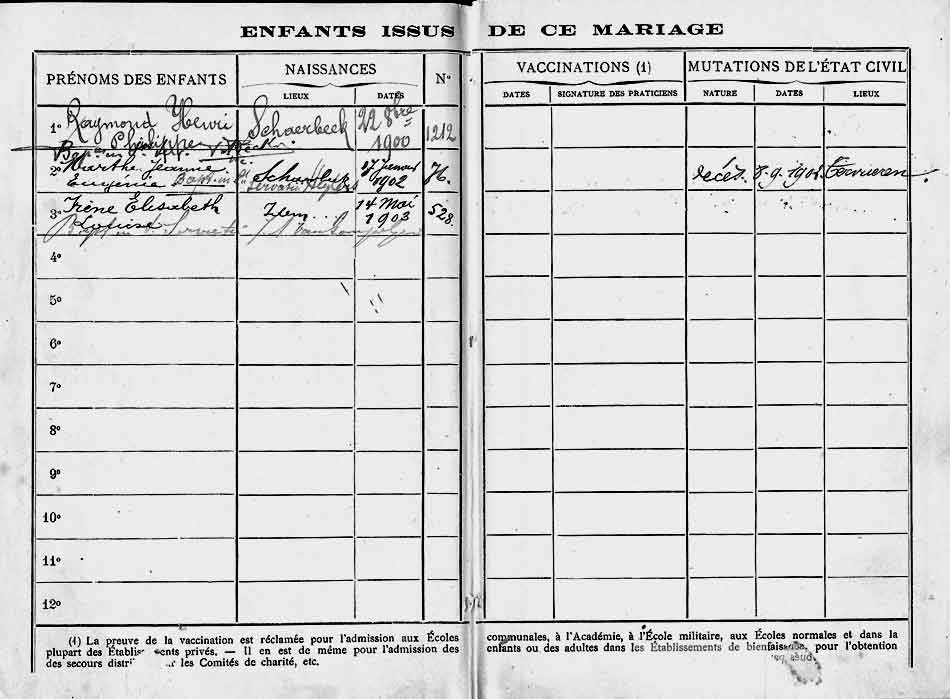 ENFANTS ISSUS DE CE MARIAGE
PRÉNOMS DES ENFANTS NAISSANCES Nº VACCINATIONS (1) MUTATIONS DE L'ÉTAT CIVIL
LIEUX DATES DATES SIGNATURE DES PRATICIENS NATURE DATES LIEUX
1º Raymond Henri Schaerbeek 22 8bre 1212
Philippe 1900
2º Marthe Jeanne Schaerbeek 1902 76. décès. Tervueren
Eugenie Servais
3º Irène Élisabeth Idem... 14 Mai 528.
Louise 1903
4º
5º
6º
7º
8º
9º
10º
11º
12º
(1) La preuve de la vaccination est réclamée pour l'admission aux Écoles communales, à l'Académie, à l'École militaire, aux Écoles normales et dans la
plupart des Établis ents privés. — Il en est de même pour l'admission des enfants ou des adultes dans les Établissements de bienfaisance, pour l'obtention
des secours distri les Comités de charité, etc.